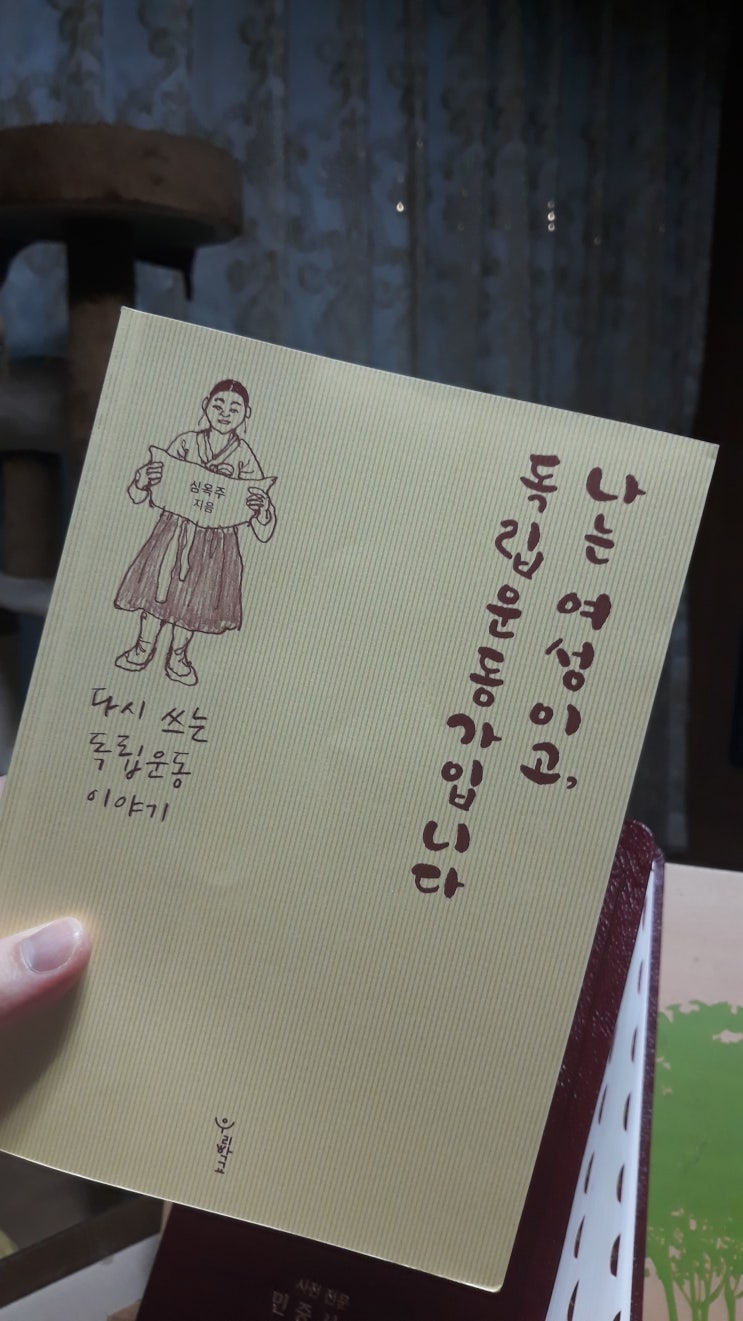 나는 여성이고,
독립운동가입니다
심옥주
지음
다시 쓰는
독립운동
이야기
우리학교
사전 전문
민중